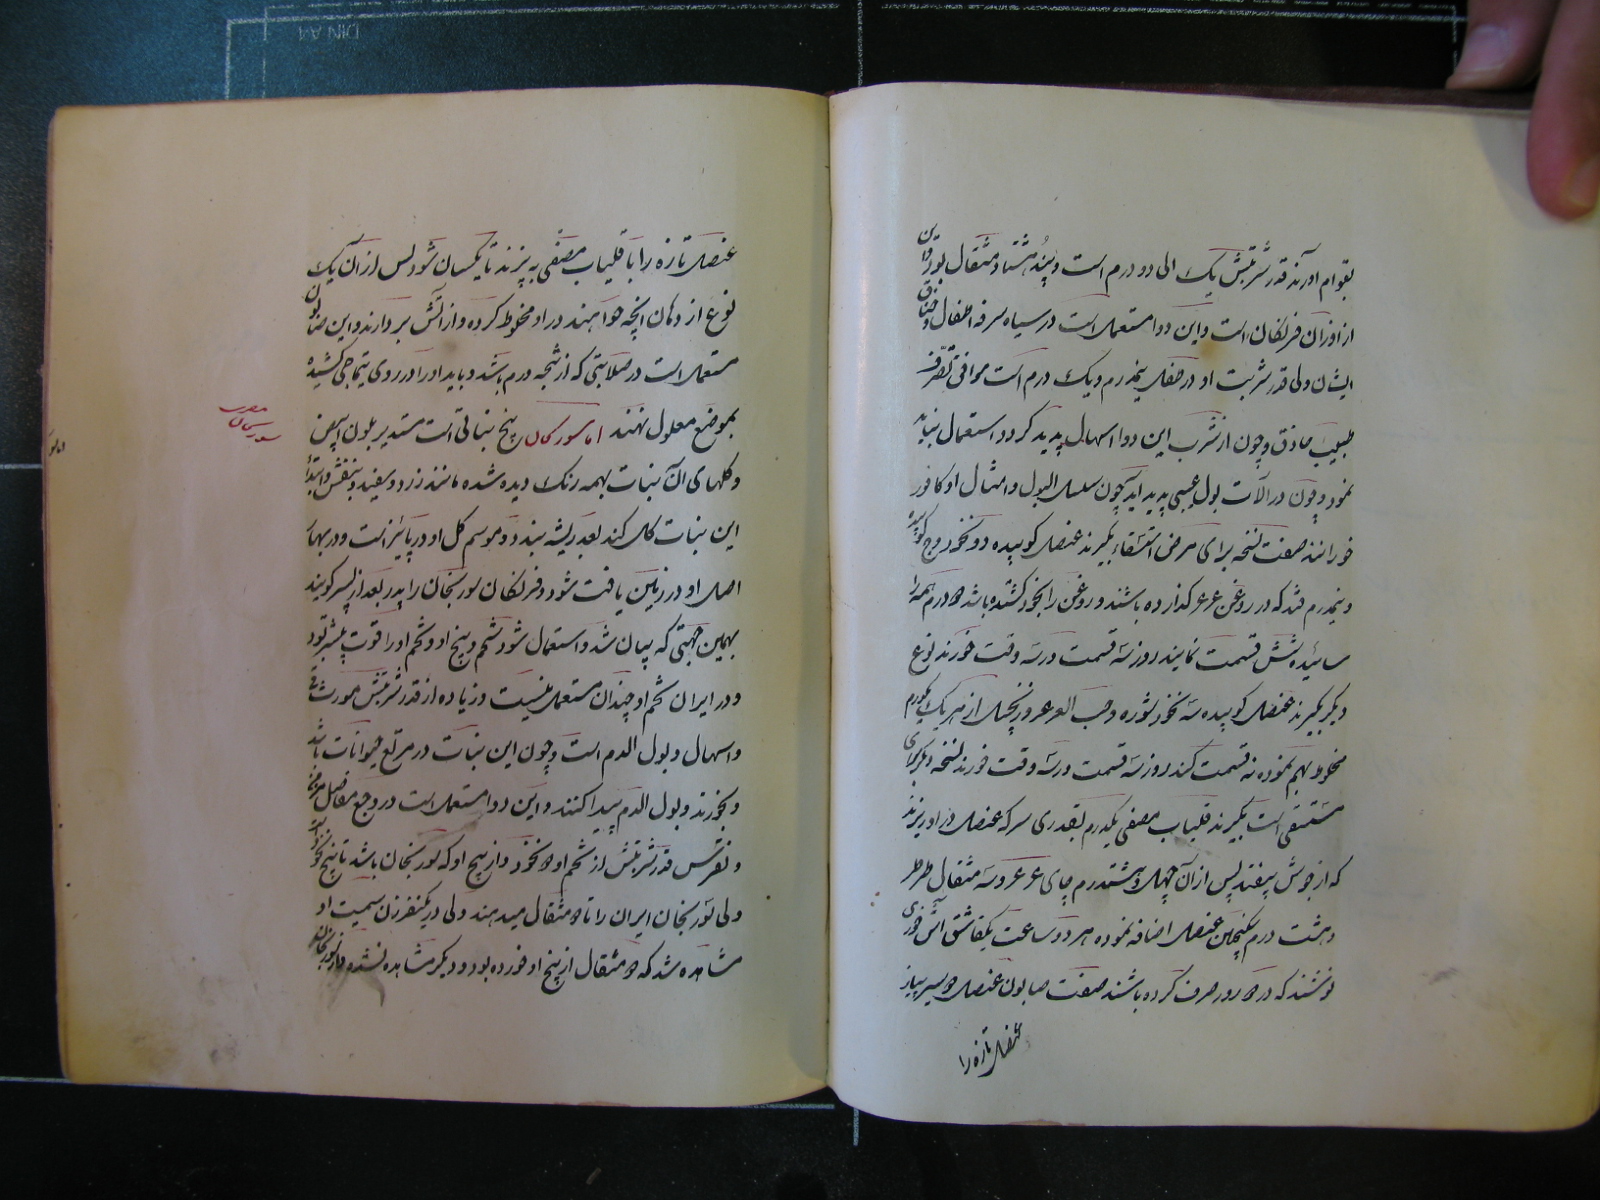 بقوام آورند قدر شربتش یک الی دو درم است و پنجهشتاد مثقال بوزن این
از اوزان فرنکان است و این دوا مستعمل است در سیاه سرفه اطفال و خناق
ایشان ولی قدر شربت او در خفل پنجدرم و یک درم است موافق تصرف
طبیب حاذق و چون از شرب این دوا اسهال پدید کردد استعمال نباید
نمود و چون در آلات بول عیبی پدید آید چون سلسل البول و امثال او کافور
خورانند صفت نسخه برای مرض استسقاء بکیرند عنصل کوبیده دو نخود وج کوبیده
و نیمدرم قند که در روغن عرعر کدارده باشند و روغن را بخود کشیده باشد درم همه را
سائیده شش قسمت نمایند روز سه قسمت در سه وقت خورند نوع
دیکر بکیرند عنصل کوبیده سه نخود شوره و حب العرعر و زنجبیل از هر یک یکدرم
مخلوط بهم نموده نه قسمت کند روز سه قسمت در سه وقت خورند نسخه دیکر برای
مستسقی است بکیرند قلیاب مصفی یکدرم بقدری سرکه عنصل در او ریزند
که از جوش بیفتد پس از آن چهل و هشتدرم چای عرعر و سه مثقال طرطر
و هشت درم سکنجبین عنصل اضافه نموده هر دو ساعت یکقاشق آش خوری
نوشند که در روز صرف کرده باشند صفت صابون عنصل سیر پیاز
عنصل تازه را
عنصل تازه را با قلیاب مصفی به پزند تا یکسان شود پس از آن یک
نوع از دهان آنچه خواهند در او مخلوط کرده و از آتش بردارند و این صابون
مستعمل است در صلابتی که از نتیجه ورم باشد و باید او را در روی تیماجی کشیده
بموضع معلول نهند اما سورنجان بیخ نباتی است مستدیر بلون ابیض
و کلهای آن نبات بهمه رنک دیده شده مانند زرد و سفید و بنفش و ابتدا
این نبات کل کند بعد ریشه بندد و موسم کل او در پائیز است و در بهار
اصل او در زمین یافت شود و فرنکان سورنجان را پدر بعد از پسر کویند
بهمین جهتی که بیان شد و استعمال شود تخم و بیخ او و تخم او را قوت بیشتر بود
و در ایران تخم او چندان مستعمل نیست و زیاده از قدر شربتش مورث قی
و اسهال و بول الدم است و چون این نبات در مرتع حیوانات باشد
و بخورند و بول الدم پیدا کنند و این دوا مستعمل است در وجع مفاصل مزمن
و نقرس قدر شربتش از تخم او نخود و از بیخ او که سورنجان باشد تا پنج نخود است
ولی سورنجان ایران را تا مثقال میدهند ولی در یکنفر زن سمیت او
مشاهده شد که مثقال از بیخ او خورده بود و دیکر مشاهده نشده
سورنجان